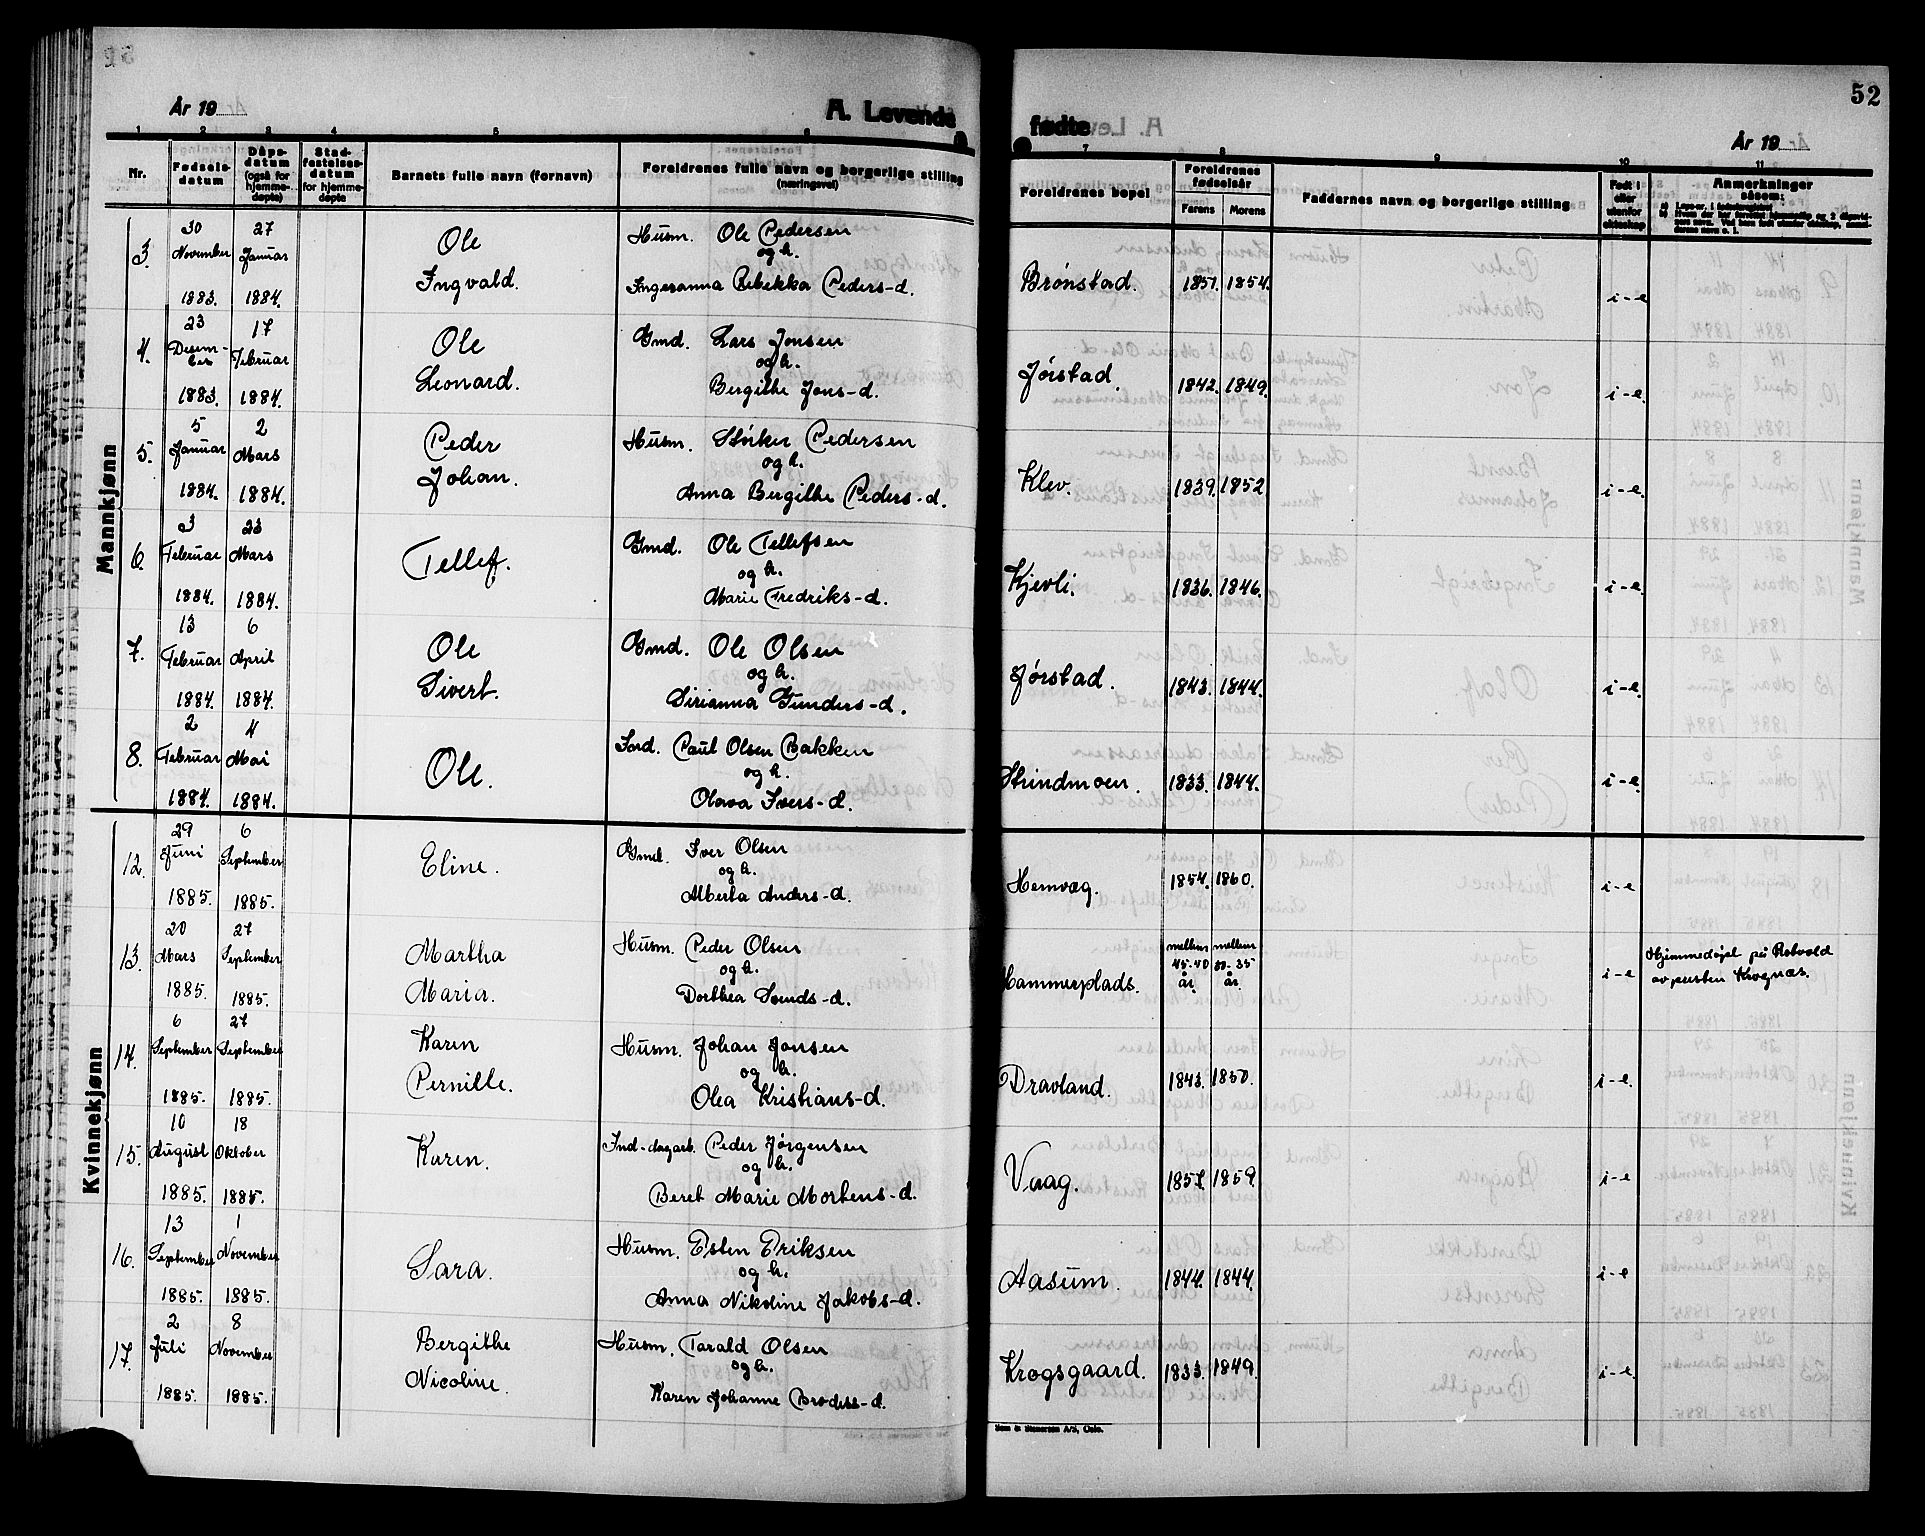 År 19
A. Levende
fødte
År 19
52
1 2 3 4 5 6 7 8 9 10 11
Nr.
Fødsels-
datum
Dåps-
datum
(også for
hjemme-
døpte)
Stad-
festelses-
datum
for hjemme-
døpte
Barnets fulle navn (fornavn)
Foreldrenes fulle navn og borgerlige stilling
(næringsvei)
Foreldrenes bopel
Foreldrenes
fødselsår
Farens Morens
Faddernes navn og borgerlige stilling
Født i
eller
utenfor
ekteskap
Anmerkninger
såsom:
Mannkjønn
3. 30 November 1883. 27 Januar 1884. Ole Ingvald. Husm. Ole Pedersen og h. Ingeranna Rebekka Peders-d. Brønstad. 1851. 1854. i-e.
4. 23 Desem-ber 1883. 17 Februar 1884. Ole Leonard. Gmd. Lars Jonsen og h. Bergithe Jons-d. Jørstad. 1842. 1849. i-e.
5. 5 Januar 1884. 2 Mars 1884. Peder Johan. Husm. Størker Pedersen og h. Anna Bergithe Peders-d. Klev. 1839. 1852 i-e.
6. 3 Februar 1884. 23 Mars 1884. Tellef. Gmd. Ole Tellefsen og h. Marie Fredriks-d. Kjevli. 1836. 1846. i-e.
7. 13 Februar 1884. 6 April 1884. Ole Sivert. Gmd. Ole Olsen og h. Sirianna Gunders-d. Jørstad. 1843. 1844. i-e.
8. 2 Februar 1884. 4 Mai 1884. Ole. Ind. Paul Olsen Bakken og h. Olava Ivers-d. Strindmoen. 1833. 1844. i-e.
Kvinnekjønn
12. 29 Juni 1885. 6 September 1885. Eline. Gmd. Iver Olsen og h. Alberta Anders-d. Hemvæg. 1854. 1860. i-e
13. 20 Mars 1885. 27 September 1885. Martha Maria. Husm. Peder Olsen og h. Dorthea Sunds-d. Hammerplads. mellem 45-40 år. mellem 30-35 år. i-e Hjemmedøpt på
av presten
14. 6 September 1885. 27 September 1885. Karen Pernille. Husm. Johan Jonsen og h. Olea Kristians-d. Dravland. 1843. 1850. i-e.
15. 10 August 1885. 18 Oktober 1885. Karen. Ind-dagarb. Peder Jørgensen og h. Beret Marie Mortens-d. Vaag. 1857. 1859. i-e
16. 13 September 1885. 1 November 1885. Sara. Husm. Esten Eriksen og h. Anna Nikoline Jakobs-d. Aasum. 1844. 1844. i-e
17. 2 Juli 1885. 8 November 1885. Bergithe Nicoline. Husm. Tarald Olsen og h. Karen Johanne Broders-d. Krogsgaard. 1833. 1849. i-e.
Sem & Stenersen A/S, Oslo.